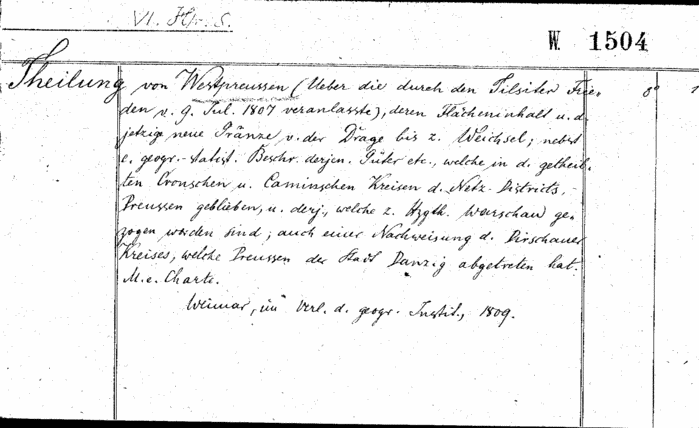 VI. Hfr. S.
W. 1504
Theilung von Westpreussen (Ueber die durch den Tilsiter Frie- 8° 1
den v. 9. Jul. 1807 veranlasste), deren Flächeninhalt u. d.
jetzig neue Gränze v. der Drage bis z. Weichsel; nebst
e. geogr.-statist. Beschr. derjen. Güter etc., welche in d. getheil-
ten Cronschen u. Caminschen Kreisen d. Netz-Districts,
Preussen geblieben, u. derj., welche z. Hzgth. Warschau ge-
zogen worden sind; auch einer Nachweisung d. Dirschauer
Kreises, welche Preussen der Stadt Danzig abgetreten hat.
M. e. Charte.
Weimar, im Verl. d. geogr. Instit., 1809.